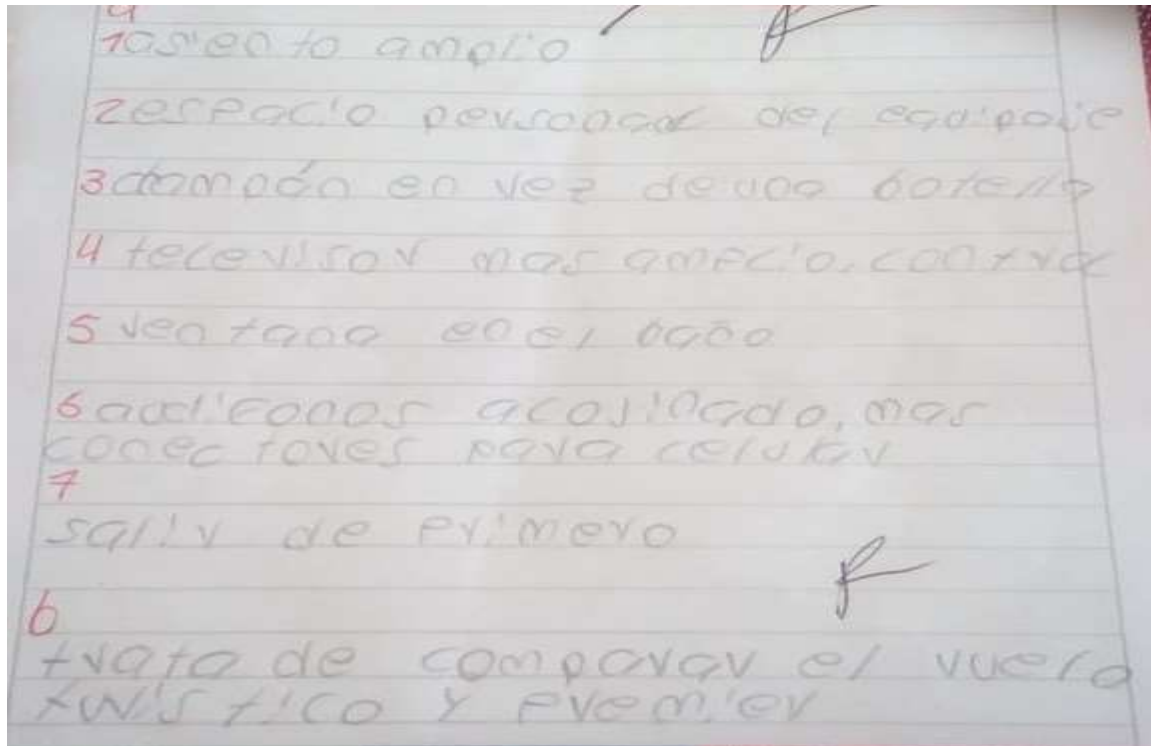 a
1 asiento amplio
2 espacio personal del equipaje
3 en vez de una botella
4 televisor mas amplio. control
5 ventana en el baño
6 audifonos acojinado, mas
conectores para celular
7
salir de primero
b
trata de comparar el vuelo
turistico y premier